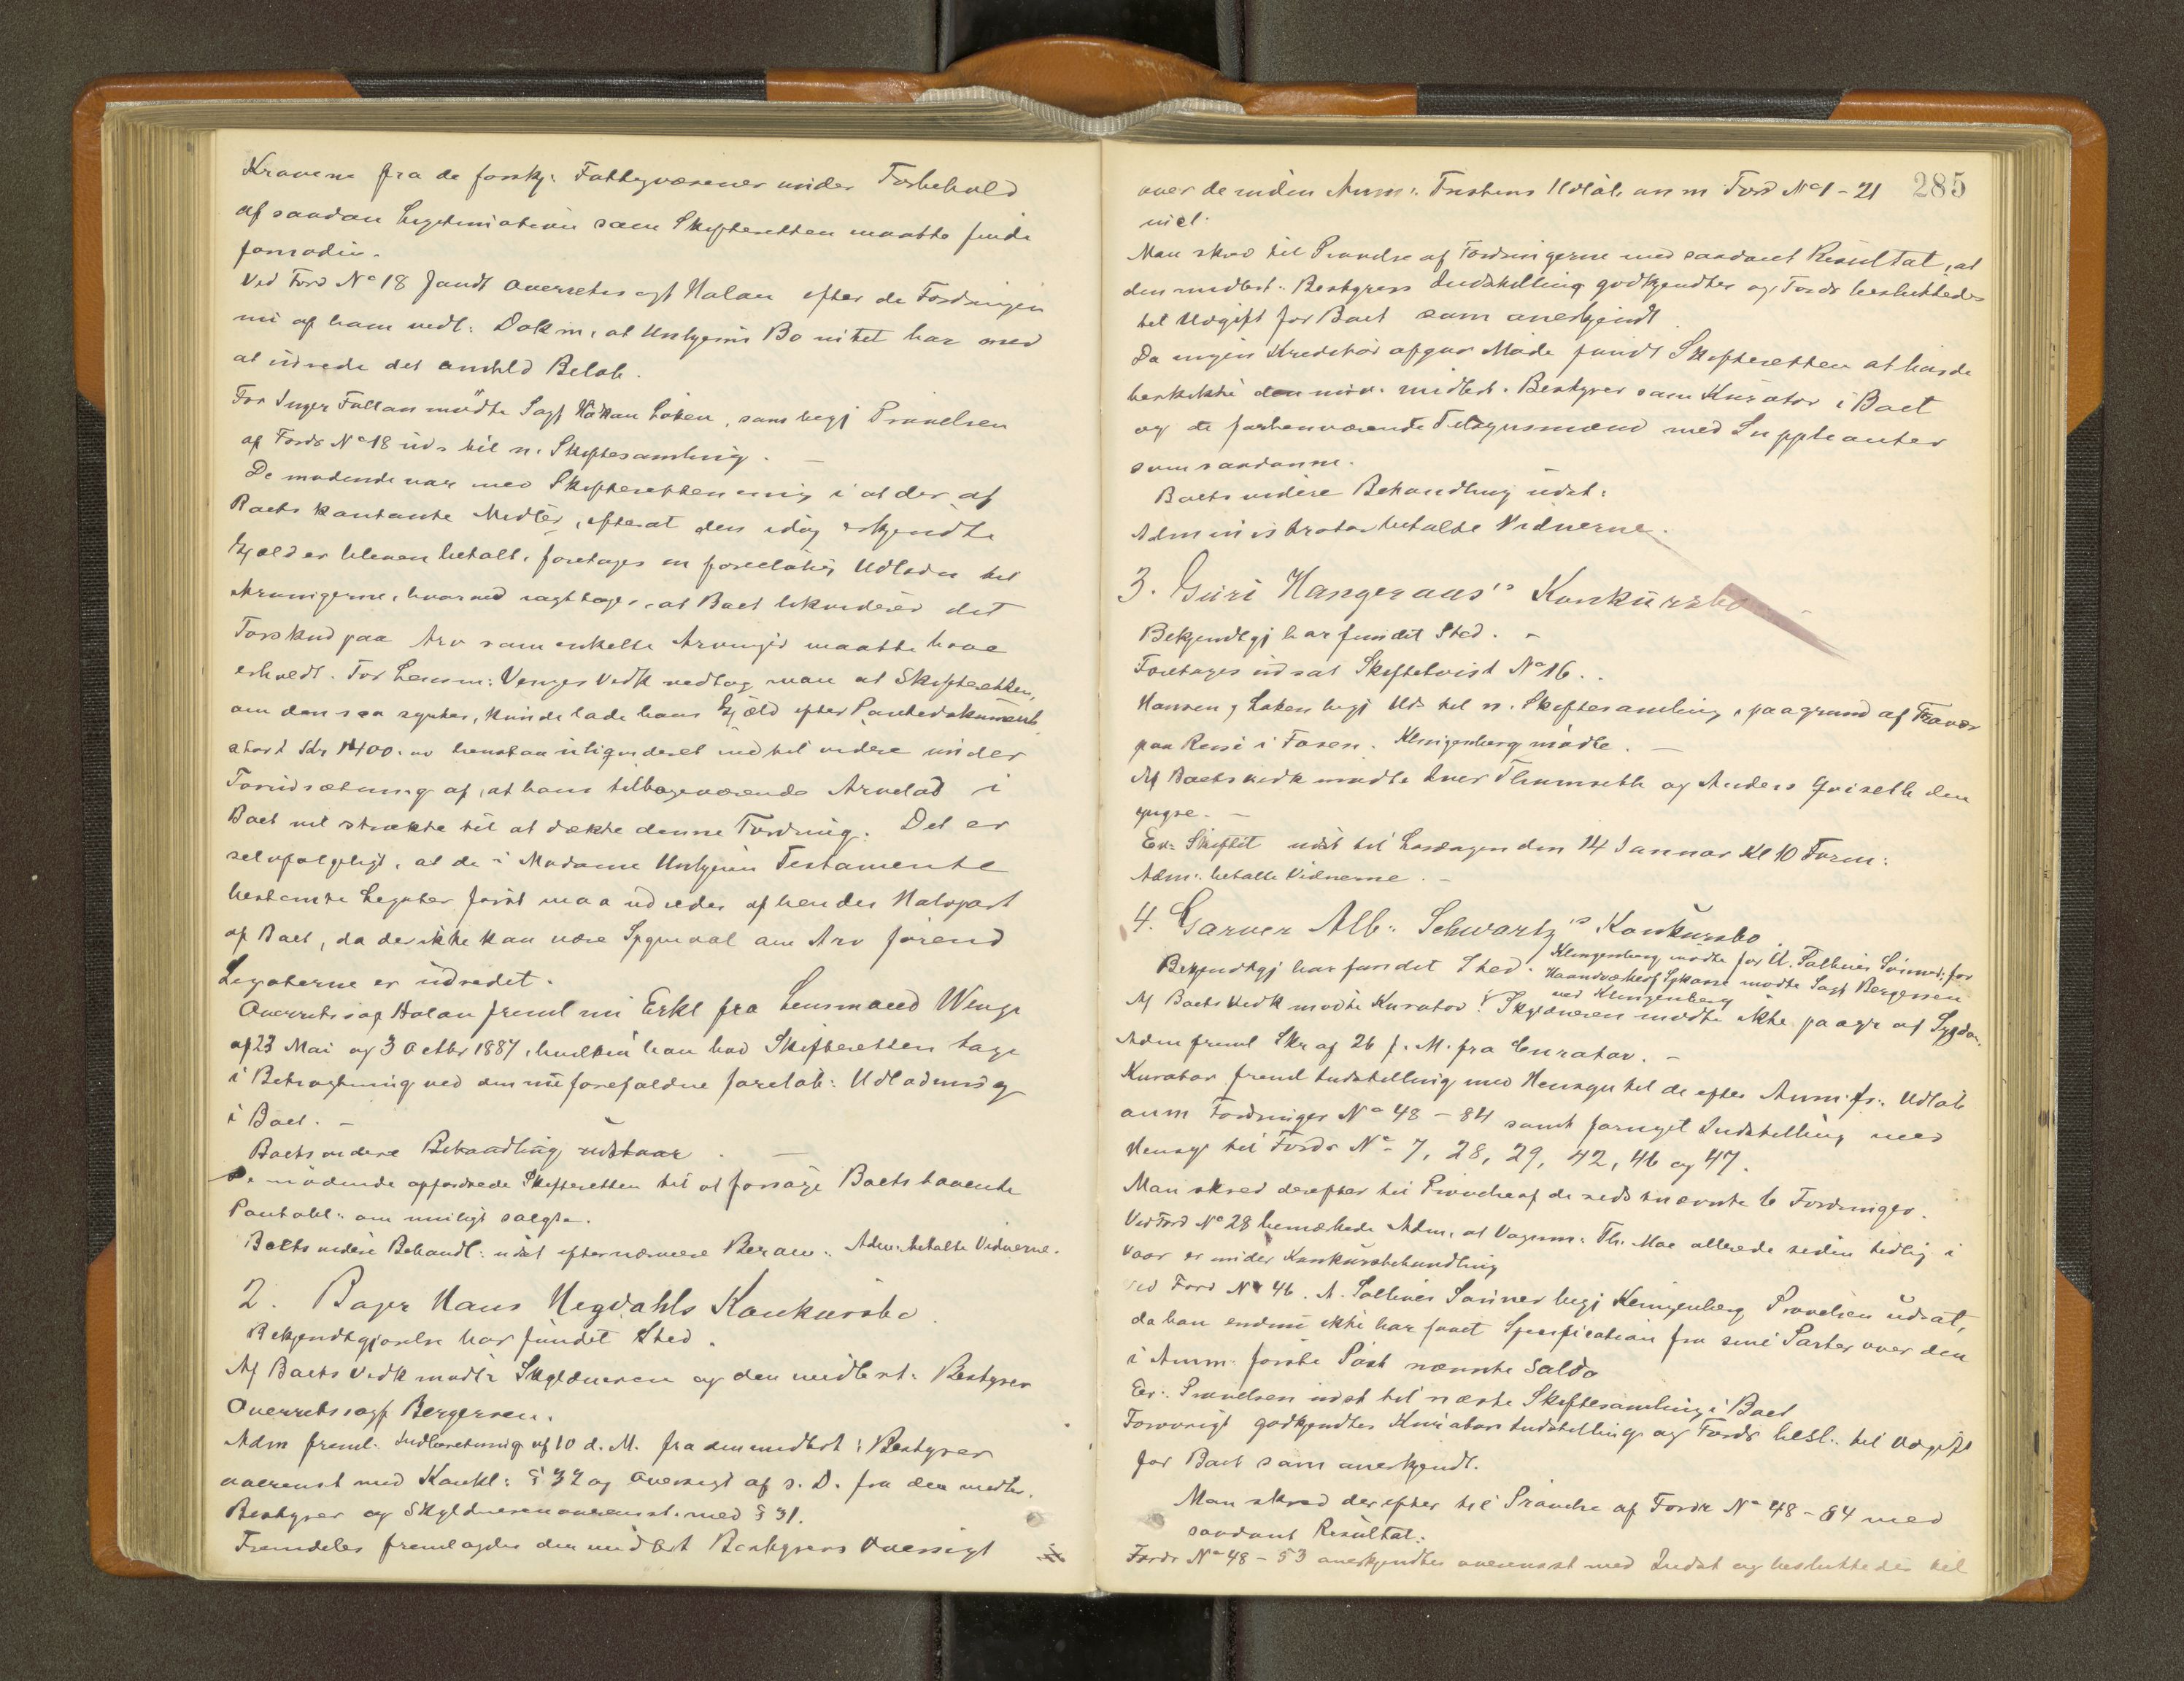 Kravene fra de forskj: Fattigvæsener under Forbehold
af saadan Legitimation som Skifteretten maatte finde
fornøden.
Ved Ford No 18 fandt Overretssagf Halan efter de Fordringen
nu af ham vedl: Dokm, at Unkjems Bo intet har med
at udrede det anmeldte Beløb.
For Inger Fallan mødte Sagf Håkan Løken, som begj Prøvelsen
af Fordr No 18 uds til n. Skiftesamling. —
De mødende var med Skifteretten enig i at der af
Boets kontante Midler, efterat den idag erkjendte
Gjæld er bleven betalt, foretages en foreløbig Udlodn til
Arvingerne, hvorved iagttages, at Boet likviderer det
Forskud paa Arv som enkelte Arvinger maatte have
erholdt. For Lensm: Venges Vedk vedtog man at Skifteretten,
om den saa synter, kunde lade hans Gjæld efter Pantedokument
stort Kr 1400. henstaa ulikvideret indtil videre under
Forudsætning af, at hans tilbageværende Arvelod i
Boet vil strække til at dække denne Fordring. Det er
selvfølgeligt, at de i Madame Unkjems Testamente
bestemte Legater først maa udredes af hendes Halvpart
af Boet, da der ikke kan være Spgsmaal om Arv førend
Legaterne er udredet.
Overretssagf Halan freml nu Erkl fra Lensmand Wenge
af 23 Mai og 3 Octbr 1887, hvilken han bad Skifteretten tage
i Betragtning ved den nu forefaldne foreløb: Udlodning
i Boet. —
Boets videre Behandling udstaar. —
De mødende opfordrede Skifteretten til at forsøge Boets havende
Pantobl: om muligt solgte.
Boets videre Behandl: udst efter nærmere Beram: Adm: betalte Vidnerne.
2. Bager Hans Hegdahls Konkursbo.
Bekjendtgjørelse har fundet Sted.
Af Boets Vedk mødte Skyldneren og den midlert: Bestyrer
Overretssagf Bergersen.
Adm freml: Indberetning af 10 d. M. fra den midlert: Bestyrer
overenst med Konkl: § 32 og Oversigt af s. D. fra den midler.
Bestyrer og Skyldneren overenst. med § 31.
Fremdeles fremlagdes den midlert Bestyrers Oversigt
285
over de inden Anm: Fristens Udløb anm Ford No 1 – 21
incl.
Man skred til Prøvelse af Fordringerne med saadant Resultat, at
den midlert: Bestyrers Indstilling godkjendtes og Fordr besluttedes
til Udgift for Boet som anerkjendt.
Da ingen Kreditor afgav Møde fandt Skifteretten at burde
beskikke den nuv. midlert. Bestyrer som Kurator i Boet
og de forhenværende Tilsynsmænd med Suppleanter
som saadanne.
Boets videre Behandling udst:
Administrator betalte Vidnerne.
3. Guri Hangeraas's Konkursbo
Bekjendtgj har fundet Sted. –
Foretages udsat Skiftetvist No 16..
Hansen, Løken begj Uds til n. Skiftesamling, paagrund af Fravær
paa Reise i Fosen. Klingenberg mødte. —
Af Boets vedk mødte Iver Thamseth og Anders Qviseth den
yngre. —
Er: Skiftet udst til Lørdagen den 14 Januar Kl 10 Form:
Adm: betalte Vidnerne. –
4. Garver Alb: Schwartz's Konkursbo
Klingenberg mødte for A. Solberg Sønner; for
Bekjendtgj har fundet Sted. Haandverkerf Sykasse mødte Sagf Bergersen
ved Klingenberg
Af Boets Vedk mødte Kurator. Skyldneren mødte ikke paagr af Sygdom.
Adm freml Skr af 26 f. M. fra Curator. –
Kurator freml Indstilling med Hensyn til de efter Anm. fr: Udløb
anm Fordringer No 48 – 84 samt fornyet Indstilling med
Hensyn til Fordr No 7, 28, 29, 42, 46 og 47.
Man skred derefter til Prøvelse af de sidstnævnte 6 Fordringer.
Ved Ford No 28 bemærkede Adm, at Vognm: Th. Moe allerede siden tidlig i
Vaar er under Konkursbehandling
Ved Ford No 46. A. Solberg Sønner begj Klingenberg Prøvelsen udsat,
da han endnu ikke har faaet Specification fra sine Parter over den
i Anm: første Post nævnte Saldo
Er: Prøvelsen udst til næste Skiftesamling i Boet
Forøvrigt godkjendtes Kurators Indstilling og Fordr besl: til Udgift
for Boet som anerkjendt.
Man skred derefter til Prøvelse af Fordr No 48 – 64 med
saadant Resultat:
Fordr No 48 – 53 anerkjendtes overenst med Indst og besluttedes til